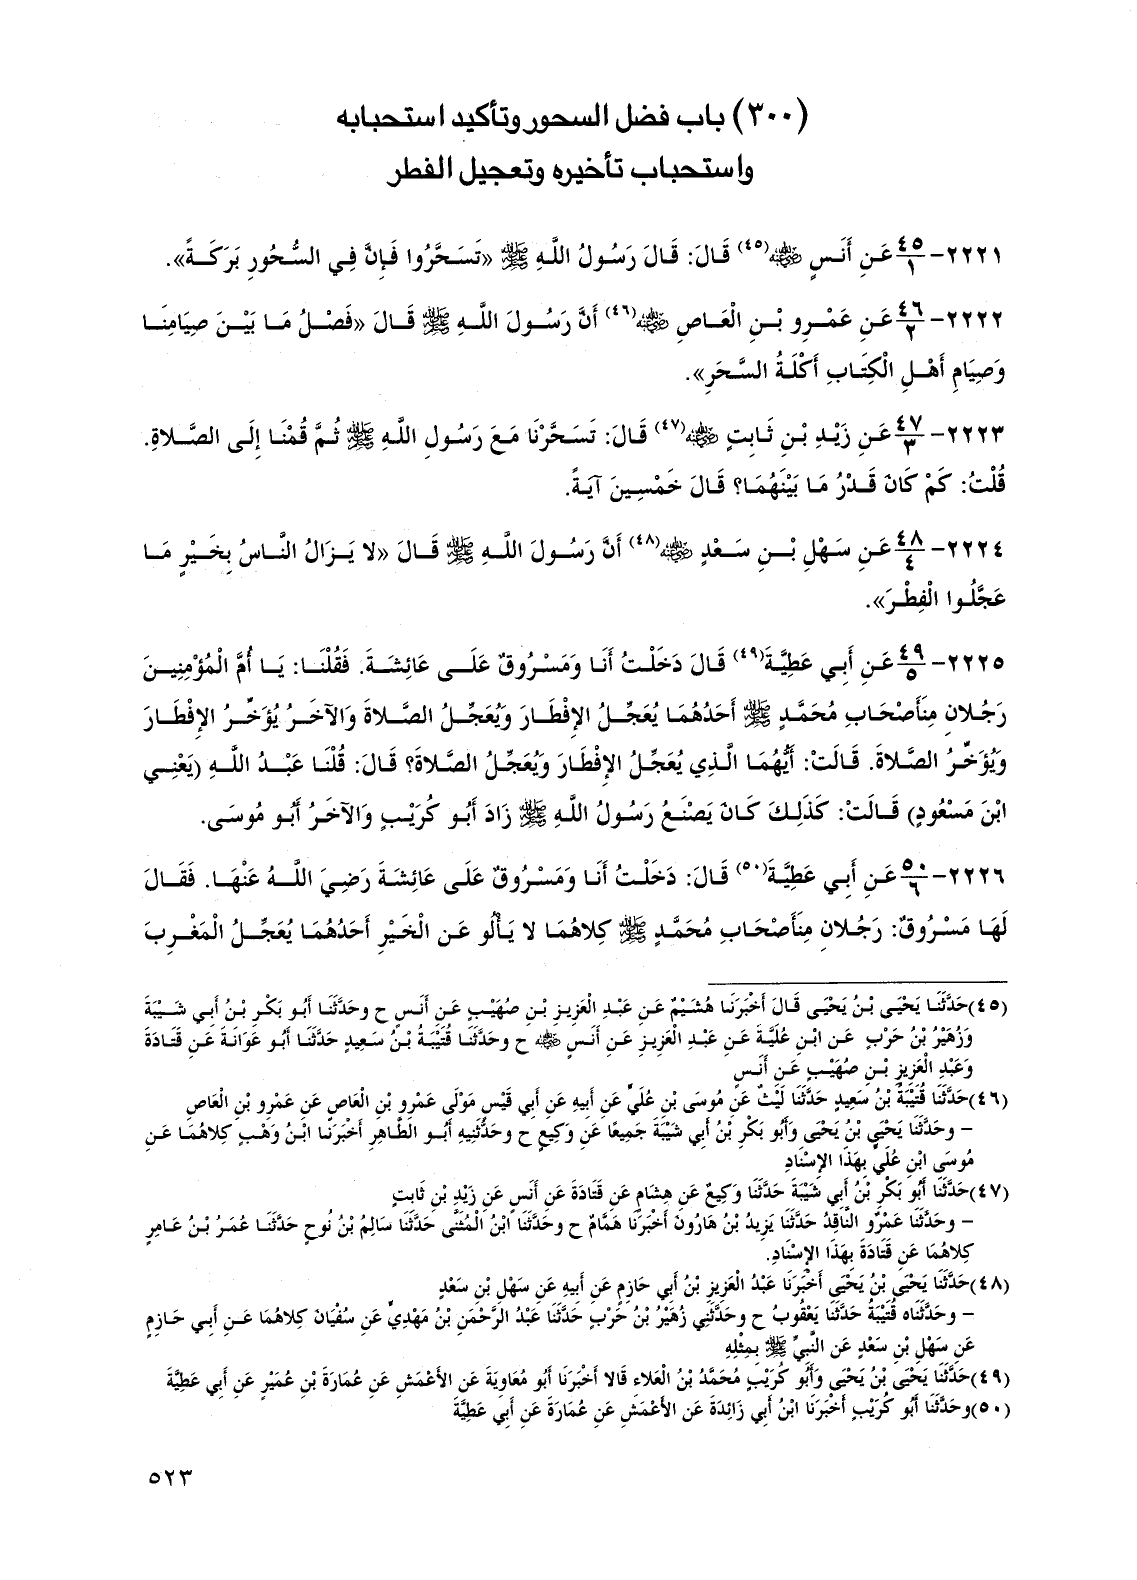 (٣٠٠) باب فضل السحور وتأكيد استحبابه
واستحباب تأخيره وتعجيل الفطر
٢٢٢١- ٤٥/١ عَنِ أَنَسٍ ﷺ(٤٥) قَالَ: قَالَ رَسُولُ اللَّهِ ﷺ «تَسَحَّرُوا فَإِنَّ فِي السُّحُورِ بَرَكَةً».
٢٢٢٢- ٤٦/٢ عَنِ عَمْرِو بْنِ الْعَاصِ (٤٦) أَنَّ رَسُولَ اللَّهِ ﷺ قَالَ «فَصْلُ مَا بَيْنَ صِيَامِنَا
وَصِيَامِ أَهْلِ الْكِتَابِ أَكْلَةُ السَّحَرِ».
٢٢٢٣- ٤٧/٣ عَنِ زَيْدِ بْنِ ثَابِتٍ (٤٧) قَالَ: تَسَحَّرْنَا مَعَ رَسُولِ اللَّهِ ﷺ ثُمَّ قُمْنَا إِلَى الصَّلاةِ.
قُلْتُ: كَمْ كَانَ قَدْرُ مَا بَيْنَهُمَا؟ قَالَ خَمْسِينَ آيَةً.
٢٢٢٤- ٤٨/٤ عَنِ سَهْلِ بْنِ سَعْدٍ (٤٨) أَنَّ رَسُولَ اللَّهِ ﷺ قَالَ «لا يَزَالُ النَّاسُ بِخَيْرٍ مَا
عَجَّلُوا الْفِطْرَ».
٢٢٢٥- ٤٩/٥ عَنِ أَبِي عَطِيَّةَ(٤٩) قَالَ دَخَلْتُ أَنَا وَمَسْرُوقٌ عَلَى عَائِشَةَ. فَقُلْنَا: يَا أُمَّ الْمُؤْمِنِينَ
رَجُلانِ مِنَأَصْحَابِ مُحَمَّدٍ ﷺ أَحَدُهُمَا يُعَجِّلُ الإِفْطَارَ وَيُعَجِّلُ الصَّلاةَ وَالآخَرُ يُؤَخِّرُ الإِفْطَارَ
وَيُؤَخِّرُ الصَّلاةَ. قَالَتْ: أَيُّهُمَا الَّذِي يُعَجِّلُ الإِفْطَارَ وَيُعَجِّلُ الصَّلاةَ؟ قَالَ: قُلْنَا عَبْدُ اللَّهِ (يَعْنِي
ابْنَ مَسْعُودٍ) قَالَتْ: كَذَلِكَ كَانَ يَصْنَعُ رَسُولُ اللَّهِ ﷺ زَادَ أَبُو كُرَيْبٍ وَالآخَرُ أَبُو مُوسَى.
٢٢٢٦- ٥٠/٦ عَنِ أَبِي عَطِيَّةَ(٥٠) قَالَ: دَخَلْتُ أَنَا وَمَسْرُوقٌ عَلَى عَائِشَةَ رَضِيَ اللَّهُ عَنْهَا. فَقَالَ
لَهَا مَسْرُوقٌ: رَجُلانِ مِنَأَصْحَابِ مُحَمَّدٍ ﷺ كِلاهُمَا لا يَأْلُو عَنِ الْخَيْرِ أَحَدُهُمَا يُعَجِّلُ الْمَغْرِبَ
(٤٥)حَدَّثَنَا يَحْيَى بْنُ يَحْيَى قَالَ أَخْبَرَنَا هُشَيْمٌ عَنِ عَبْدِ الْعَزِيزِ بْنِ صُهَيْبٍ عَنِ أَنَسٍ ح وحَدَّثَنَا أَبُو بَكْرِ بْنُ أَبِي شَيْبَةَ
وَزُهَيْرُ بْنُ حَرْبٍ عَنِ ابْنِ عُلَيَّةَ عَنِ عَبْدِ الْعَزِيزِ عَنِ أَنَسٍ ح وحَدَّثَنَا قُتَيْبَةُ بْنُ سَعِيدٍ حَدَّثَنَا أَبُو عَوَانَةَ عَنِ قَتَادَةَ
وَعَبْدِ الْعَزِيزِ بْنِ صُهَيْبٍ عَنِ أَنَسٍ
(٤٦)حَدَّثَنَا قُتَيْبَةُ بْنُ سَعِيدٍ حَدَّثَنَا لَيْثٌ عَنِ مُوسَى بْنِ عُلَيٍّ عَنِ أَبِيهِ عَنِ أَبِي قَيْسٍ مَوْلَى عَمْرِو بْنِ الْعَاصِ عَنِ عَمْرِو بْنِ الْعَاصِ
– وحَدَّثَنَا يَحْيَى بْنُ يَحْيَى وَأَبُو بَكْرِ بْنُ أَبِي شَيْبَةَ جَمِيعًا عَنِ وَكِيعٍ ح وحَدَّثَنِيهِ أَبُو الطَّاهِرِ أَخْبَرَنَا ابْنُ وَهْبٍ كِلاهُمَا عَنِ
مُوسَى ابْنِ عُلَيٍّ بِهَذَا الإِسْنَادِ
(٤٧)حَدَّثَنَا أَبُو بَكْرِ بْنُ أَبِي شَيْبَةَ حَدَّثَنَا وَكِيعٌ عَنِ هِشَامٍ عَنِ قَتَادَةَ عَنِ أَنَسٍ عَنِ زَيْدِ بْنِ ثَابِتٍ
– وحَدَّثَنَا عَمْرٌو النَّاقِدُ حَدَّثَنَا يَزِيدُ بْنُ هَارُونَ أَخْبَرَنَا هَمَّامٌ ح وحَدَّثَنَا ابْنُ الْمُثَنَّى حَدَّثَنَا سَالِمُ بْنُ نُوحٍ حَدَّثَنَا عُمَرُ بْنُ عَامِرٍ
كِلاهُمَا عَنِ قَتَادَةَ بِهَذَا الإِسْنَادِ.
(٤٨)حَدَّثَنَا يَحْيَى بْنُ يَحْيَى أَخْبَرَنَا عَبْدُ الْعَزِيزِ بْنُ أَبِي حَازِمٍ عَنِ أَبِيهِ عَنِ سَهْلِ بْنِ سَعْدٍ
– وحَدَّثَنَاه قُتَيْبَةُ حَدَّثَنَا يَعْقُوبُ ح وحَدَّثَنِي زُهَيْرُ بْنُ حَرْبٍ حَدَّثَنَا عَبْدُ الرَّحْمَنِ بْنُ مَهْدِيٍّ عَنِ سُفْيَانَ كِلاهُمَا عَنِ أَبِي حَازِمٍ
عَنِ سَهْلِ بْنِ سَعْدٍ عَنِ النَّبِيِّ ﷺ بِمِثْلِهِ
(٤٩)حَدَّثَنَا يَحْيَى بْنُ يَحْيَى وَأَبُو كُرَيْبٍ مُحَمَّدُ بْنُ الْعَلاءِ قَالا أَخْبَرَنَا أَبُو مُعَاوِيَةَ عَنِ الأَعْمَشِ عَنِ عُمَارَةَ بْنِ عُمَيْرٍ عَنِ أَبِي عَطِيَّةَ
(٥٠)وحَدَّثَنَا أَبُو كُرَيْبٍ أَخْبَرَنَا ابْنُ أَبِي زَائِدَةَ عَنِ الأَعْمَشِ عَنِ عُمَارَةَ عَنِ أَبِي عَطِيَّةَ
٥٢٣